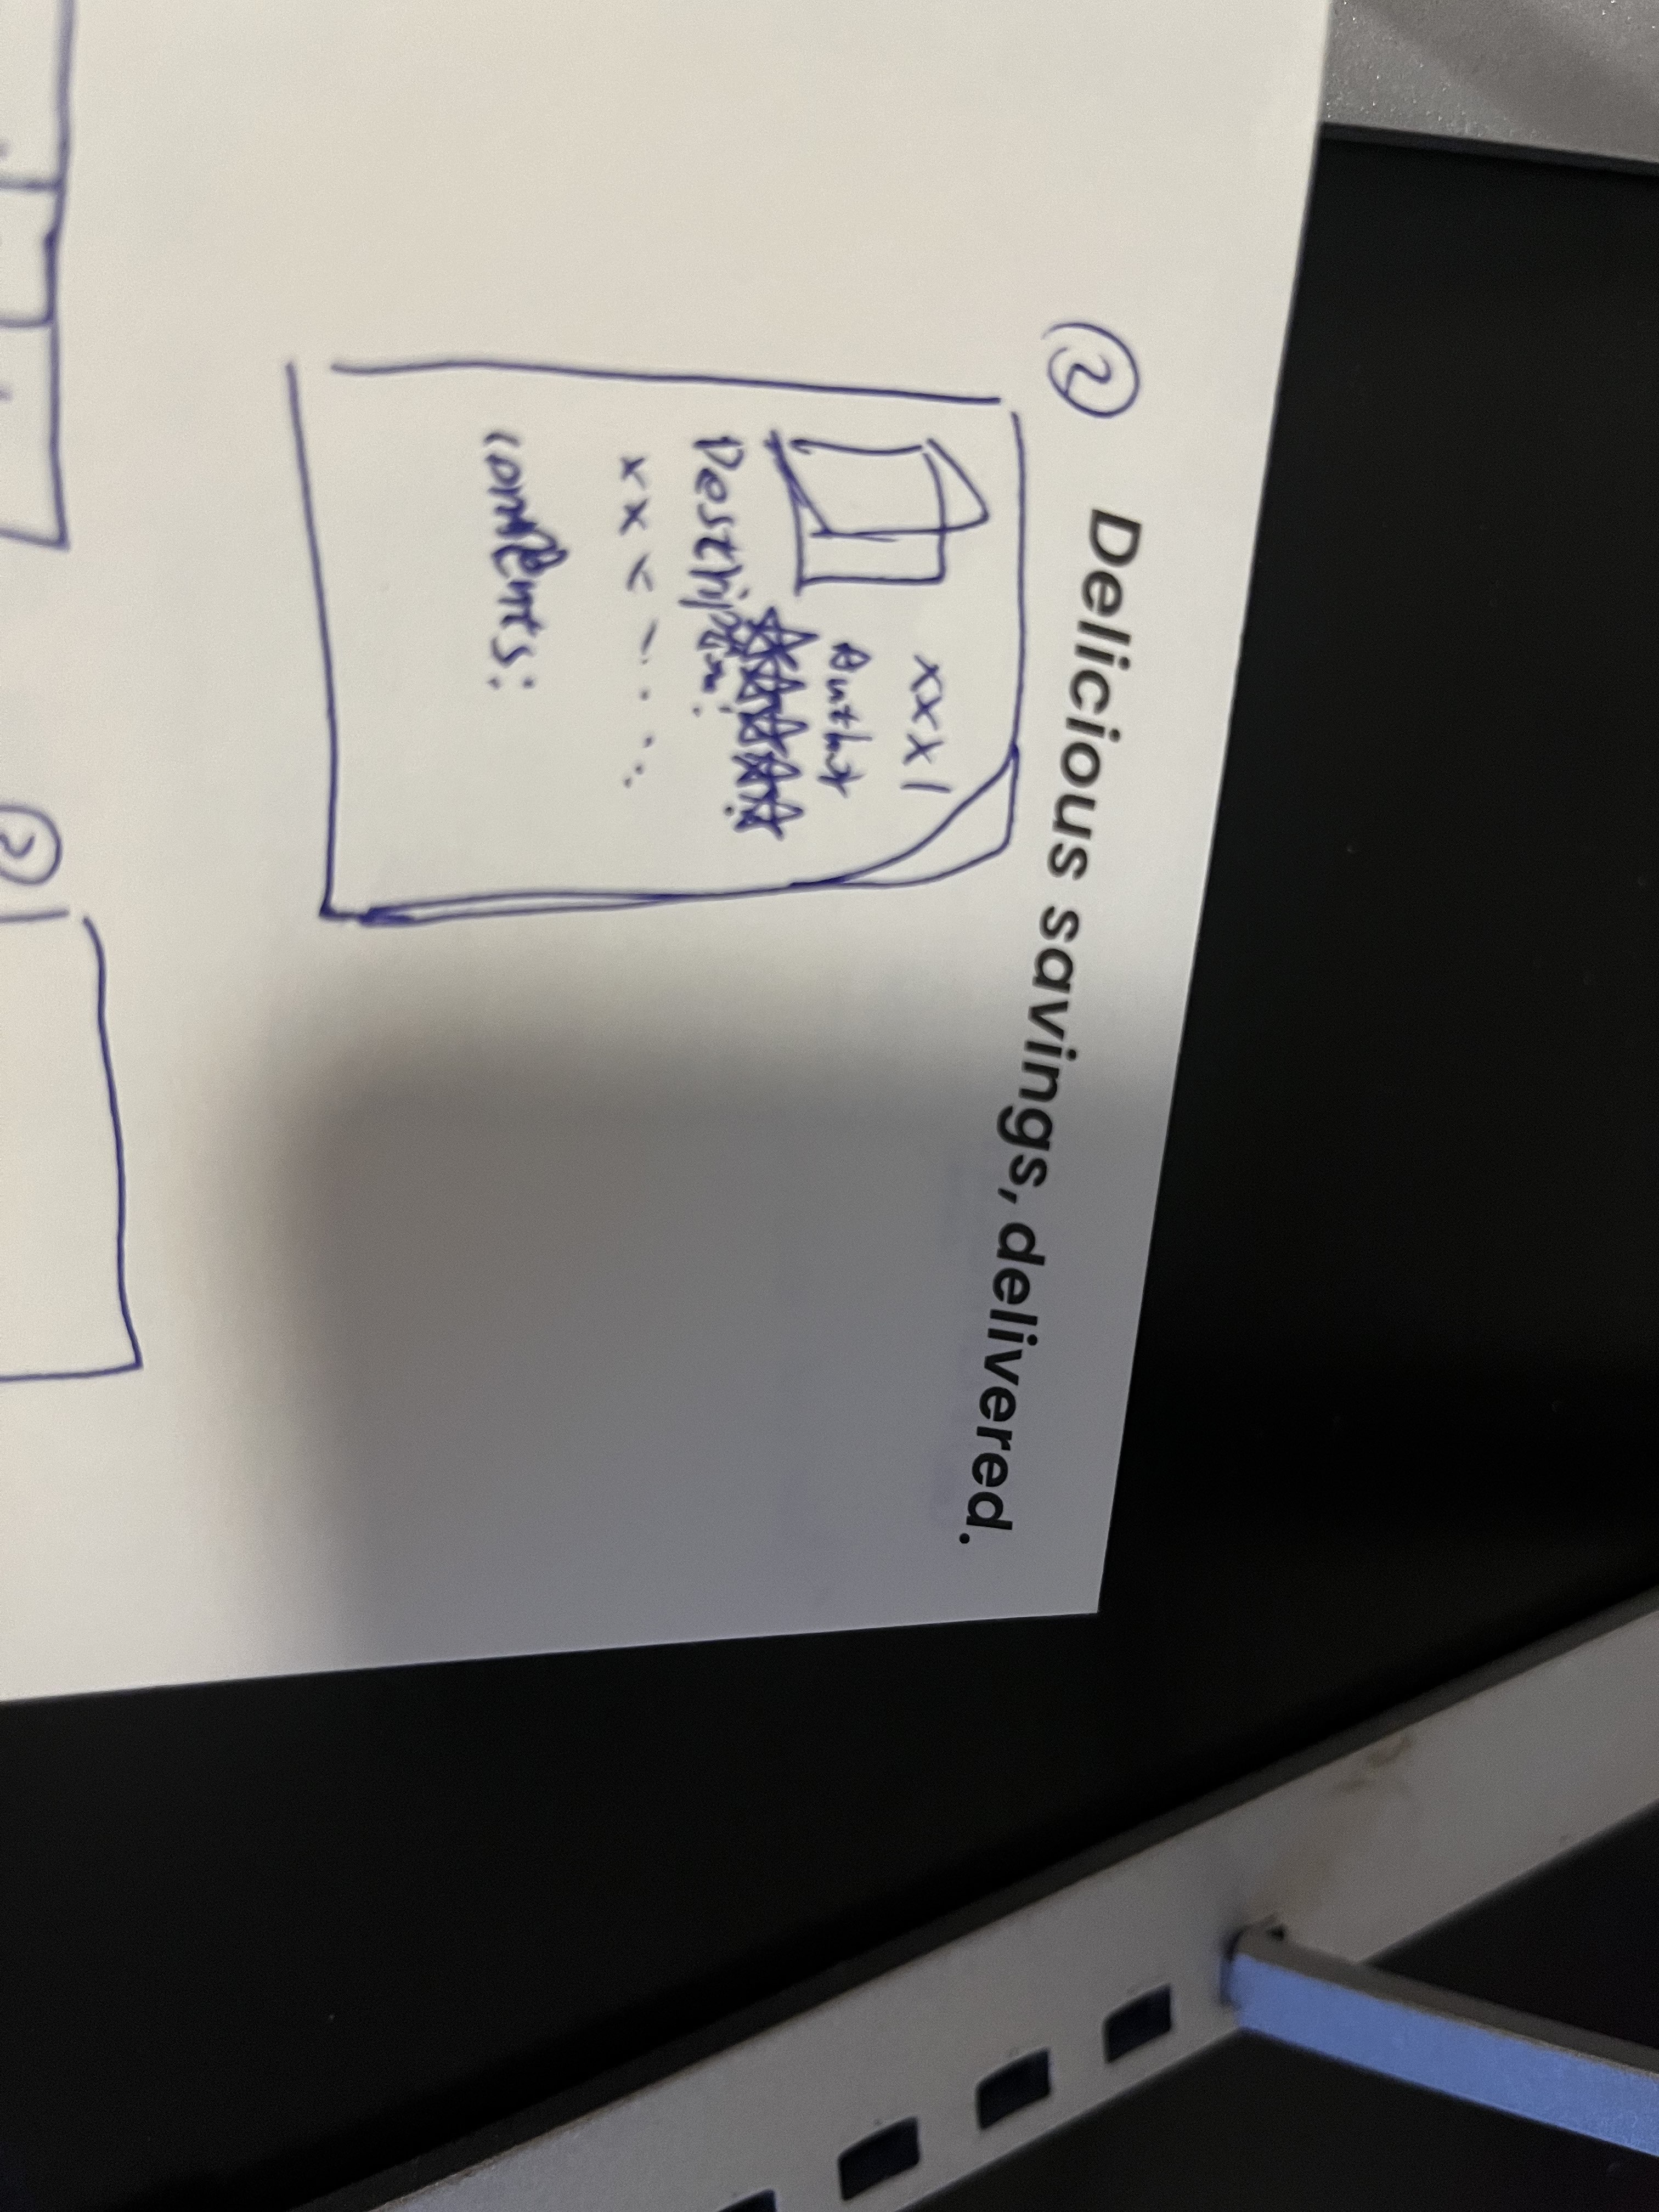 ② Delicious savings, delivered.
xxx1
Author
☆☆☆☆☆
Description:
xxx ......
comments: